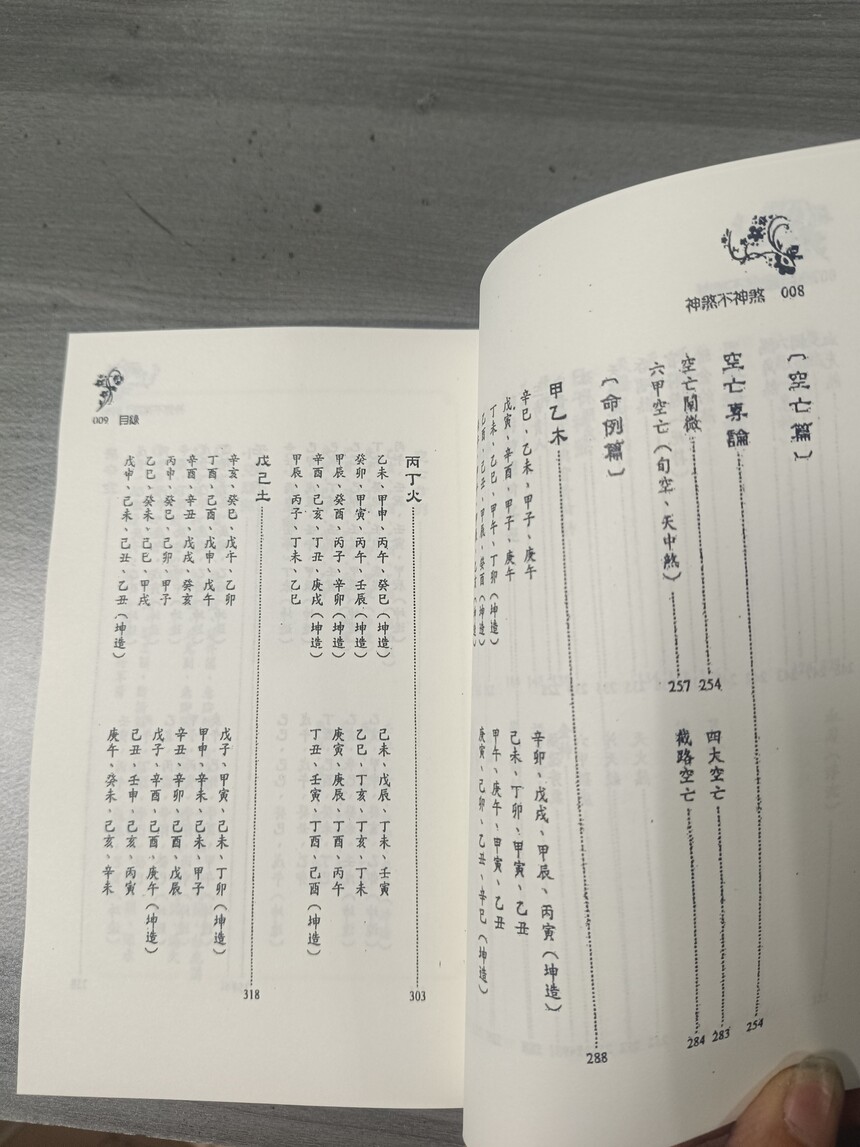 神煞不神煞 008
〔空亡篇〕
空亡專論 254
空亡闡微 254
四大空亡 283
六甲空亡（旬空、天中煞） 257
截路空亡 284
〔命例篇〕
甲乙木 288
辛巳、乙未、甲子、庚午
辛卯、戊戌、甲辰、丙寅（坤造）
戊寅、辛酉、甲子、庚午
己未、丁卯、甲寅、乙丑
丁未、乙巳、甲午、丁卯（坤造）
甲午、庚午、甲寅、乙丑
己酉、乙丑、甲辰、癸酉（坤造）
庚寅、己卯、乙丑、辛巳（坤造）
009 目錄
丙丁火 303
乙未、甲申、丙午、癸巳（坤造）
己未、戊辰、丁未、壬寅
癸卯、甲寅、丙午、壬辰（坤造）
乙巳、丁亥、丁亥、丁未
甲辰、癸酉、丙子、辛卯（坤造）
庚寅、庚辰、丁酉、丙午
辛酉、己亥、丁丑、庚戌（坤造）
丁丑、壬寅、丁酉、己酉（坤造）
甲辰、丙子、丁未、乙巳
戊己土 318
辛亥、癸巳、戊午、乙卯
戊子、甲寅、己未、丁卯（坤造）
丁酉、己酉、戊申、戊午
甲申、辛未、己未、甲子
辛酉、辛丑、戊戌、癸亥
辛丑、辛卯、己酉、戊辰
丙申、癸巳、己卯、甲子
戊子、辛酉、己酉、庚午（坤造）
乙巳、癸未、己巳、甲戌
己丑、壬申、己亥、丙寅
戊申、己未、己丑、乙丑（坤造）
庚午、癸未、己亥、辛未